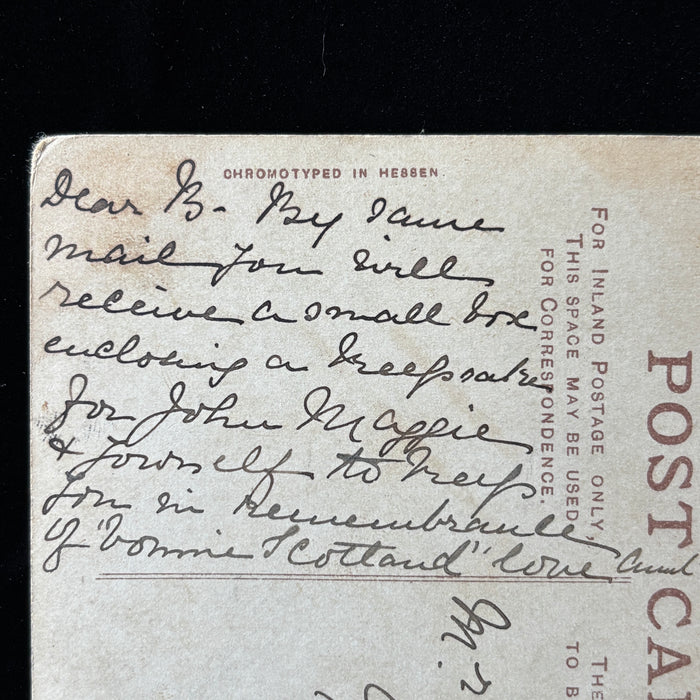 CHROMOTYPED IN HESSEN
Dear B- By same
mail you will
receive a small box
enclosing a keepsake
for John Maggie
& yourself to keep
you in remembrance
of "bonnie Scotland" love Aunt
FOR INLAND POSTAGE ONLY,
THIS SPACE MAY BE USED
FOR CORRESPONDENCE.
POST CA
THE
TO B
M.